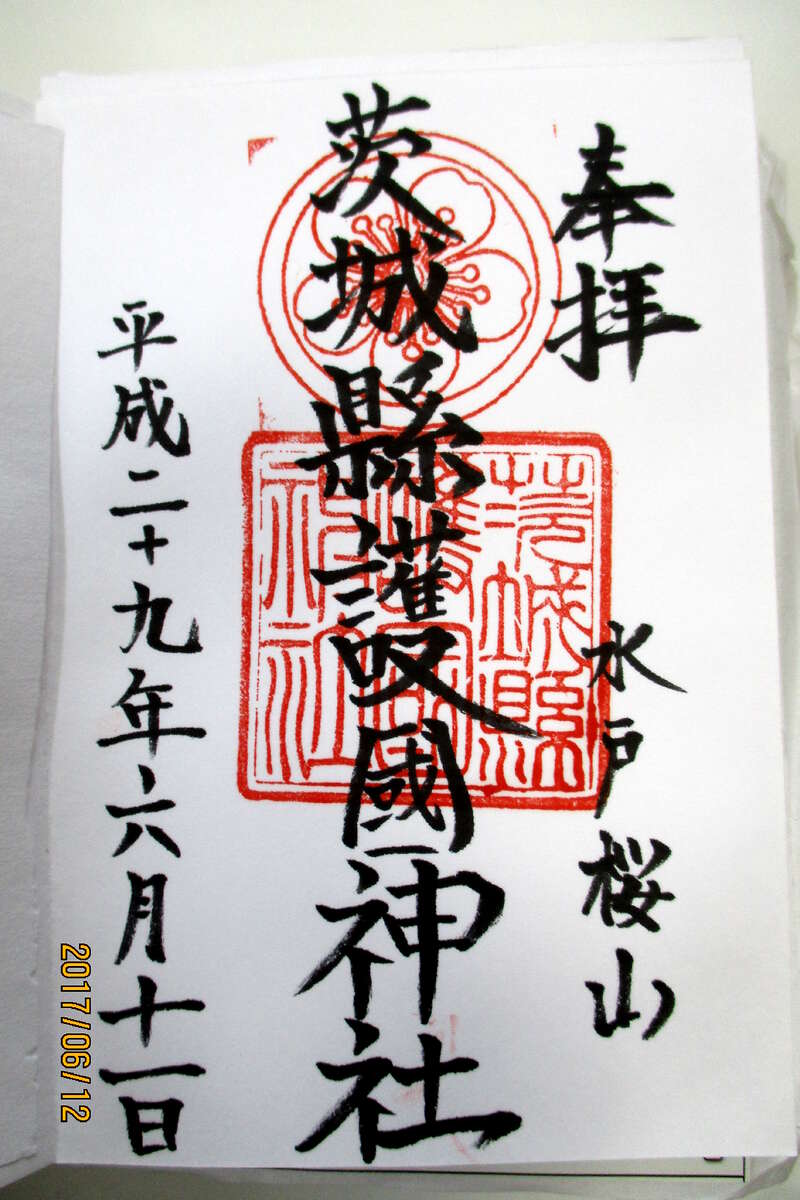 奉拝
水戸桜山
茨城縣護國神社
茨城縣
護國
神社
平成二十九年六月十一日
2017/06/12